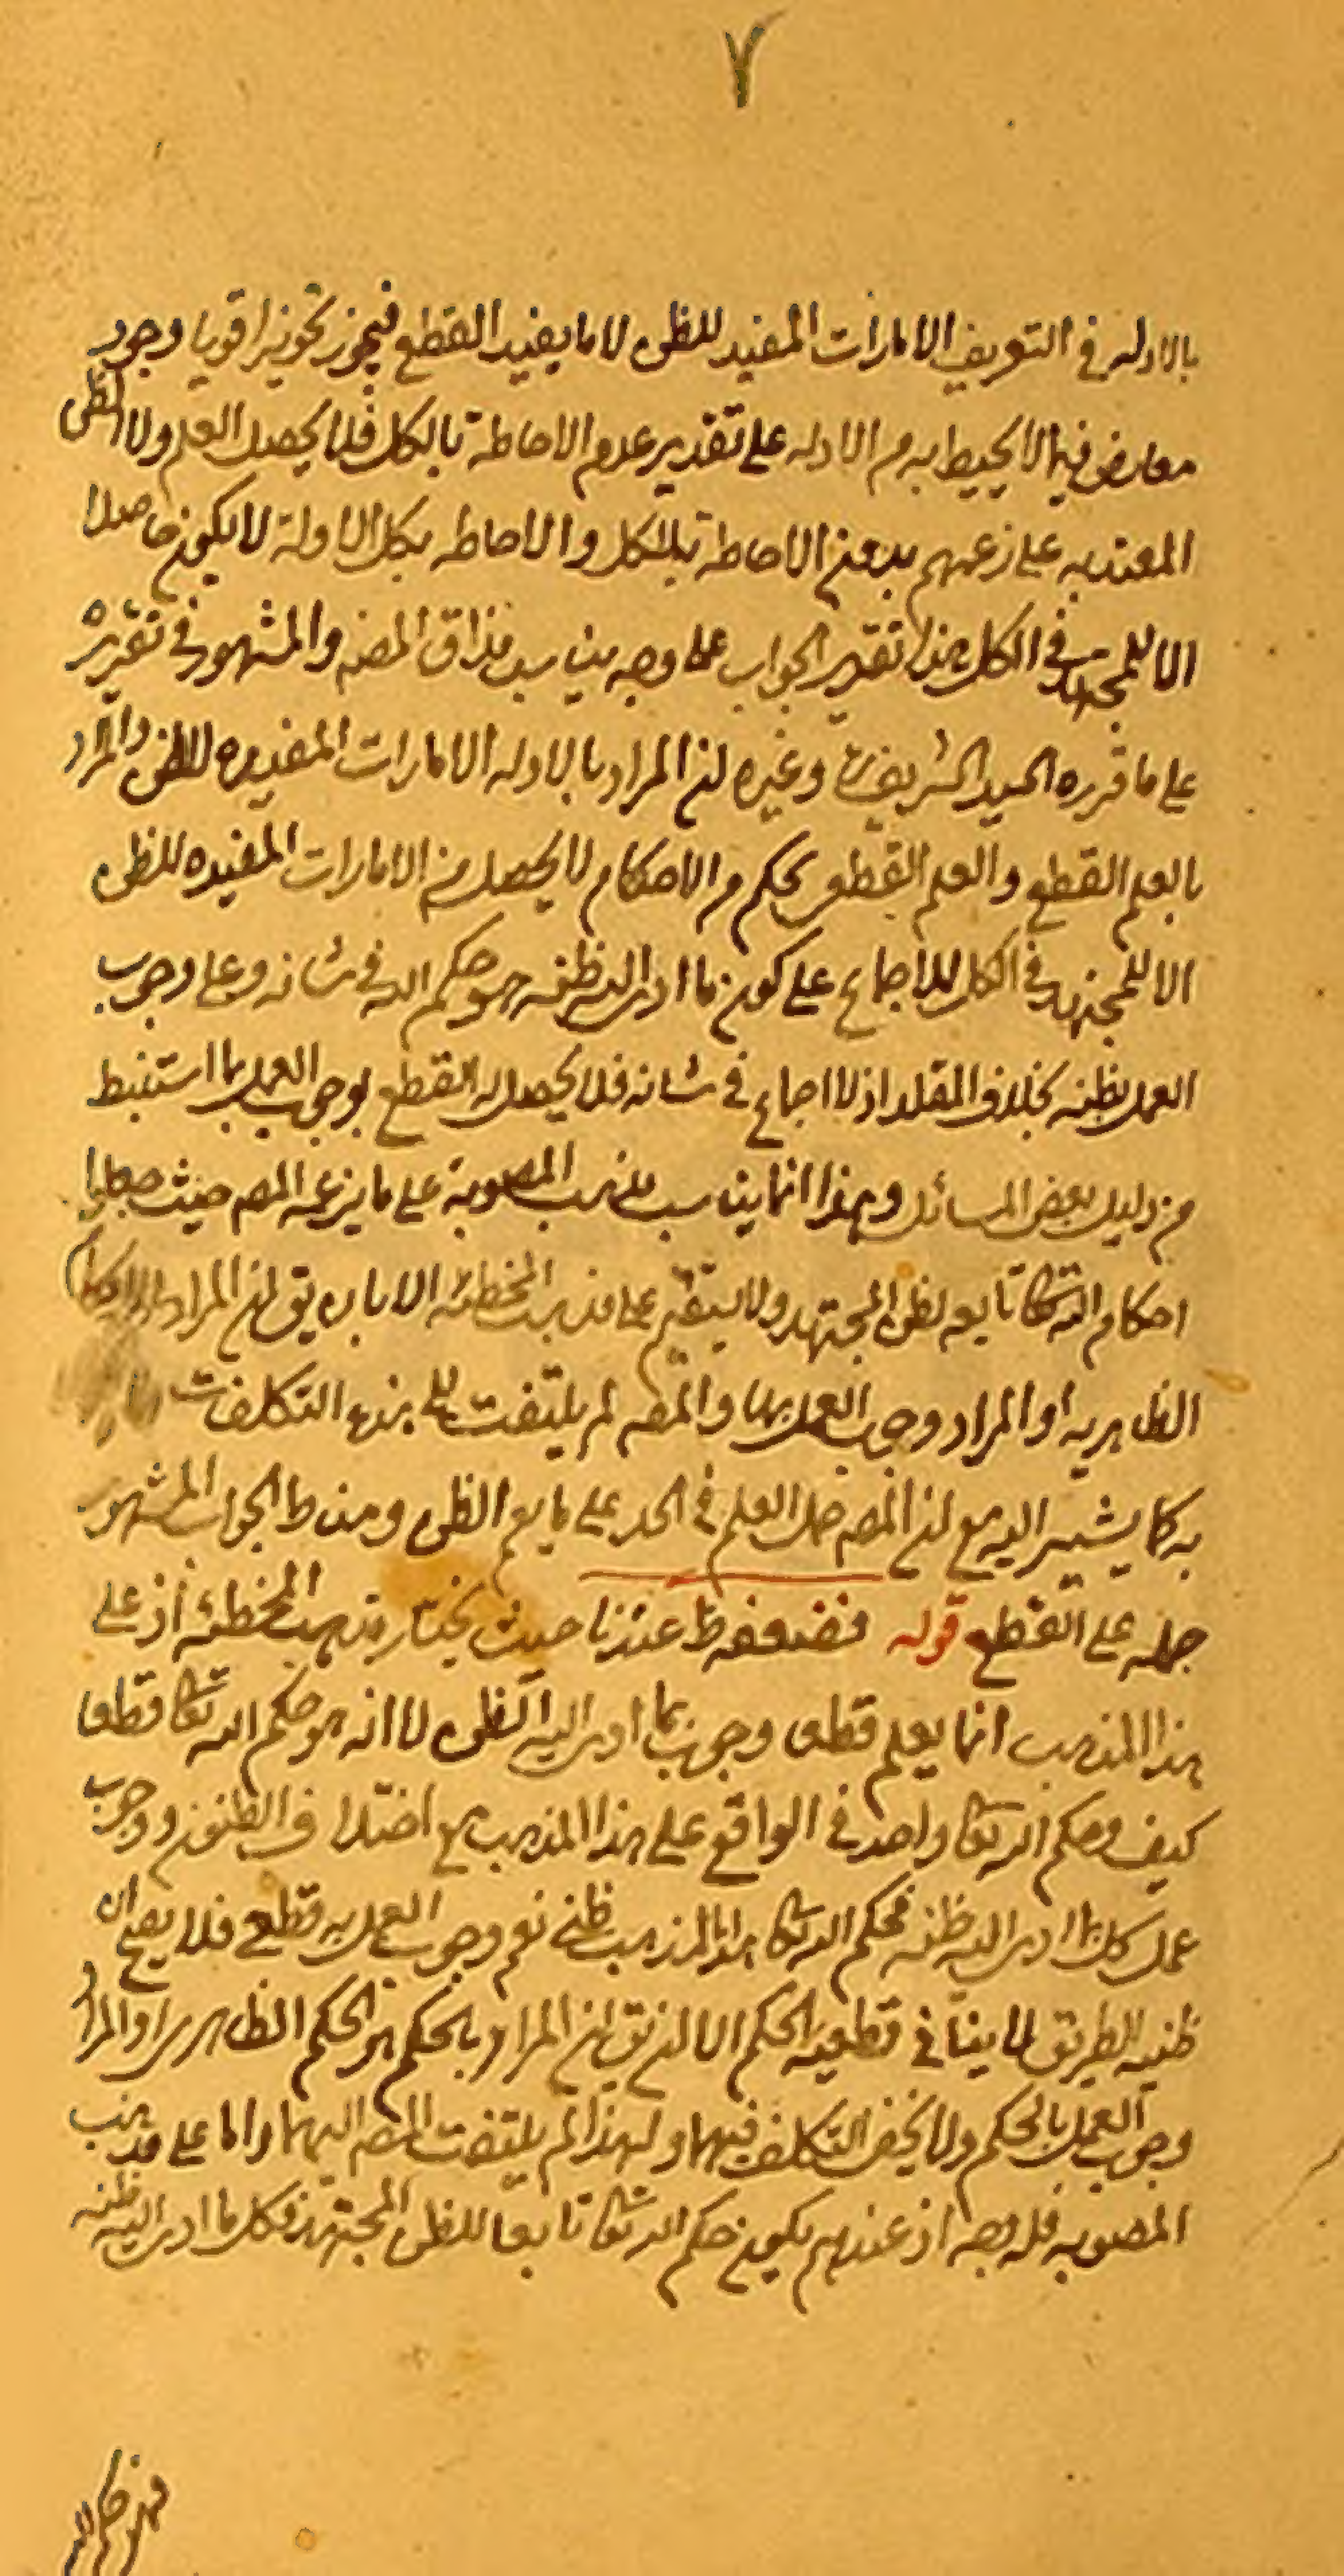 ٧
بالادله في التعريف الامارات المفيد للظن لا ما يفيد القطع فيجوز تجويزا قويا وجود
معارض فيما لا يحيط به من الادله على تقدير عدم الاحاطة بالكل فلا يحصل العلم ولا الظن
المعتد به على زعمهم بدون الاحاطة بالكل والاحاطه بكل الادلة لا يكون حاصلا
الا للمجتهد في الكل هذا تقرير الجواب على وجه يناسب مذاق المصنف والمشهور في تقريره
على ما قرره السيد الشريف وغيره ان المراد بالادله الامارات المفيده للظن والمراد
بالعلم القطع والعلم القطعي بحكم من الاحكام لا يحصل من الامارات المفيده للظن
الا للمجتهد في الكل للاجماع على كون ما ادى اليه ظنه هو حكم الله في شانه وعلى وجوب
العمل بظنه بخلاف المقلد اذ لا اجماع في شانه فلا يحصل له القطع بوجوب العمل بما استنبط
من دليل بعض المسائل وهذا انما يناسب مذهب المصوبة على ما يزعمه المص حيث جعلوا
احكام الله تعا تابعه لظن المجتهد ولا يستقيم على مذهب المخطئه الا بان يق ان المراد الاحكام
الظاهريه او المراد وجوب العمل بها والمص لم يلتفت الى هذه التكلفات
به كما يشير اليه مع ان المص حمل العلم في الحد على ما يعم الظن ومناط الجواب المشهور
حمله على القطع قوله فضعفه ظ عندنا حيث يختار مذهب المخطئه اذ على
هذا المذهب انما يعلم قطعا وجوب ما ادى اليه الظن لا انه هو حكم الله تعا قطعا
كيف وحكم الله تعا واحد في الواقع على هذا المذهب مع اختلاف الظنون ووجوب
عمل كل بما ادى اليه ظنه فحكم الله تعا على هذا المذهب ظني نعم وجوب العمل به قطعي فلا يصح ان
ظنيه الطريق لا ينافي قطعية الحكم الا ان يق ان المراد بالحكم هو الحكم الظاهري او المراد
وجوب العمل بالحكم ولا يخفى التكلف فيهما ولهذا لم يلتفت المص اليهما واما على مذهب
المصوبه فله وجه اذ عندهم يكون حكم الله تعا تابعا لظن المجتهد فكل ما ادى اليه ظنه
فهو حكم الله